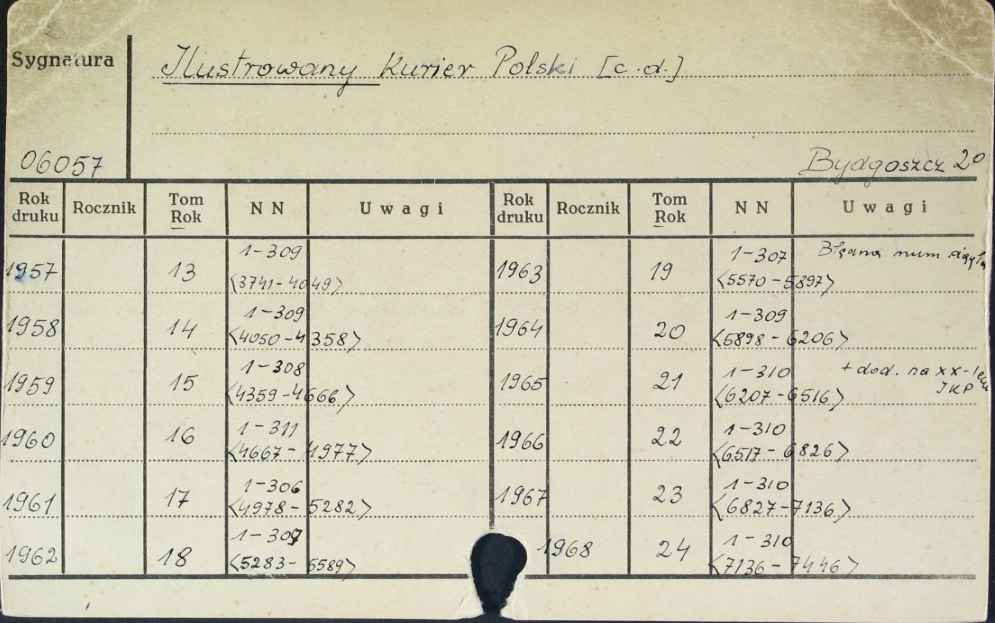 Sygnatura
Ilustrowany Kurier Polski [c.d.]
06057
Bydgoszcz 20
Rok druku Rocznik Tom Rok NN Uwagi Rok druku Rocznik Tom Rok NN Uwagi
1957 13 1-309 <3741-4049>
1958 14 1-309 <4050-4358>
1959 15 1-308 <4359-4666>
1960 16 1-311 <4667-4977>
1961 17 1-306 <4978-5282>
1962 18 1-307 <5283-5589>
1963 19 1-307 <5570-5897> Błędna num
1964 20 1-309 <6898-6206>
1965 21 1-310 <6207-6516> + dod. na XX-lecie IKP
1966 22 1-310 <6517-6826>
1967 23 1-310 <6827-7136>
1968 24 1-310 <7136-7446>